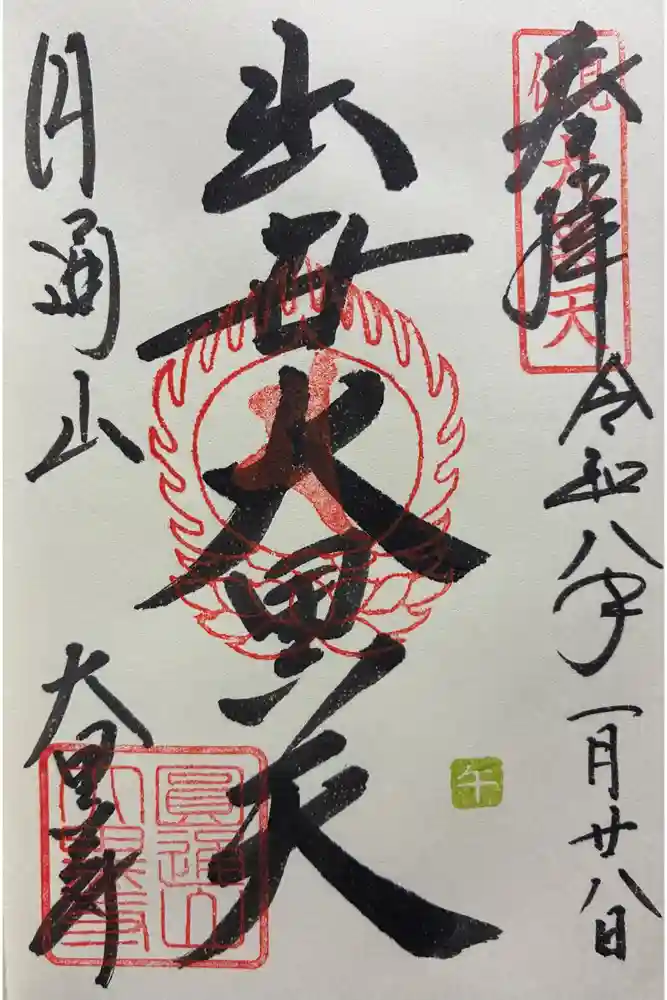 奉拝
令和八年
一月廿八日
出世大黒天
午
円通山
大黒寺
圓通山
大黒寺